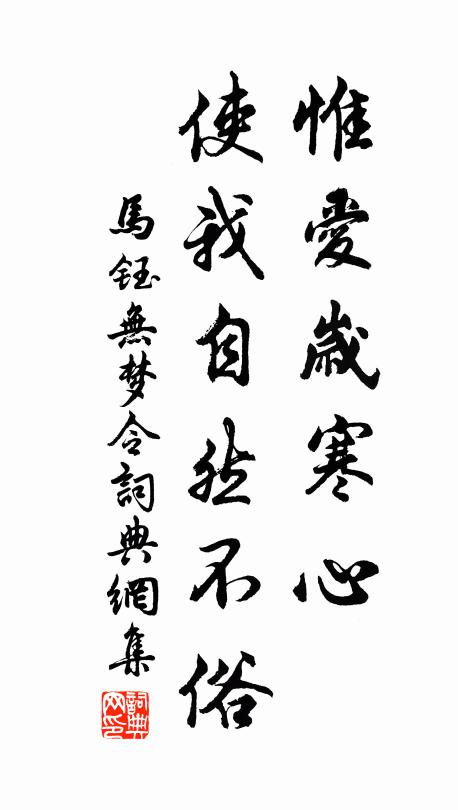 惟愛歲寒心
使我自然不俗
馬鈺無梦令詞典網集
詞典网印